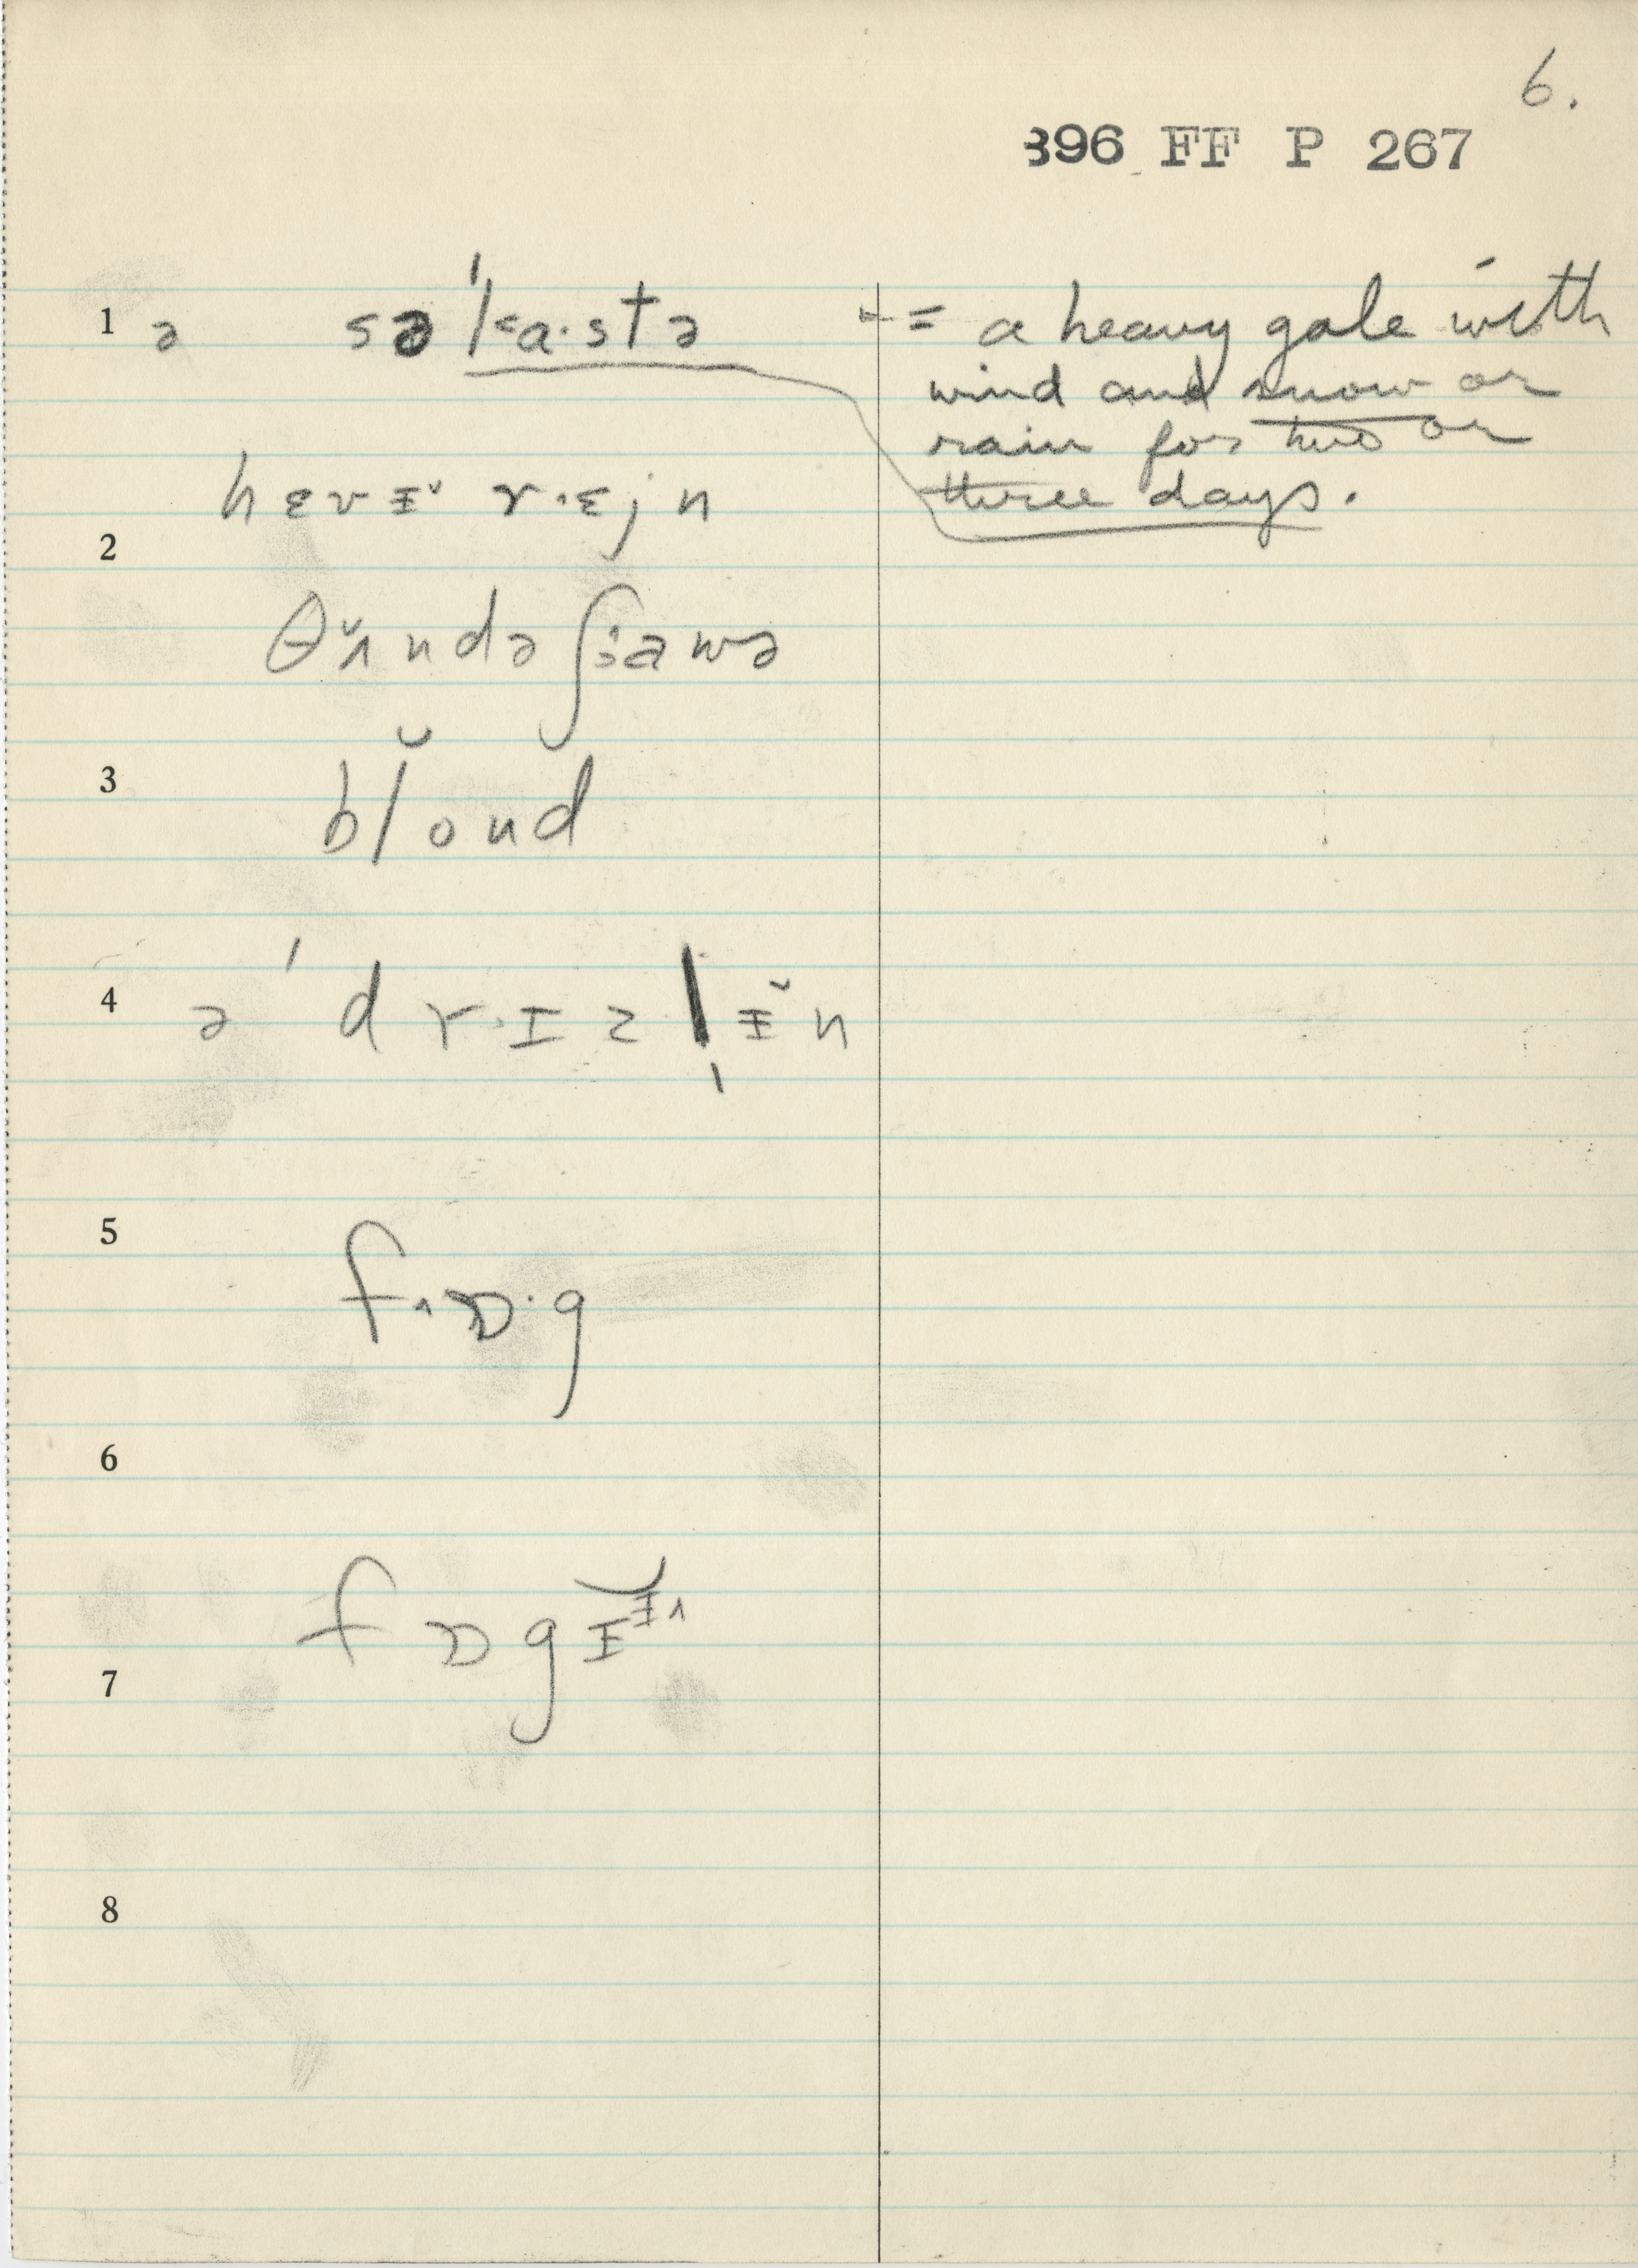 6.
396 FF P 267
1 ə sə'ka·stə - = a heavy gale with
wind and snow or
rain for two or
three days.
hɛvɪ̵̆ r·ɛjn
2
θʌ̆ndə ʃaʊwə
3
blʊ̆nd
4 ə 'drɪzl̩ɪ̵̆n
5
f˄ɒ·g
6
fɒgɪᵻ̆˄
7
8